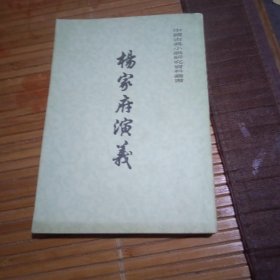 中國古典小説研究資料叢書
楊家府演義